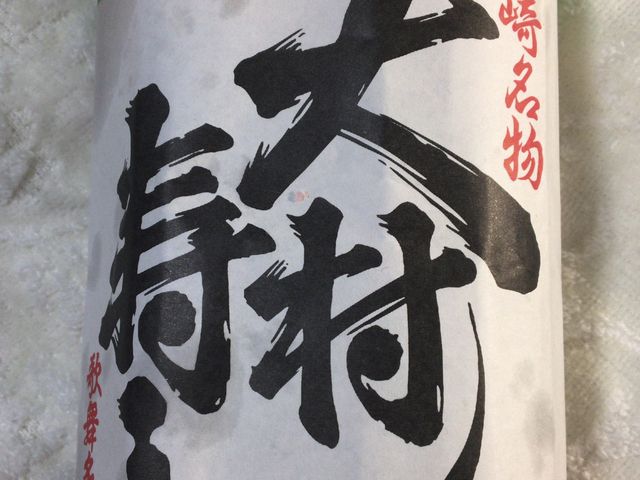 崎名物
大村
寿
歌舞